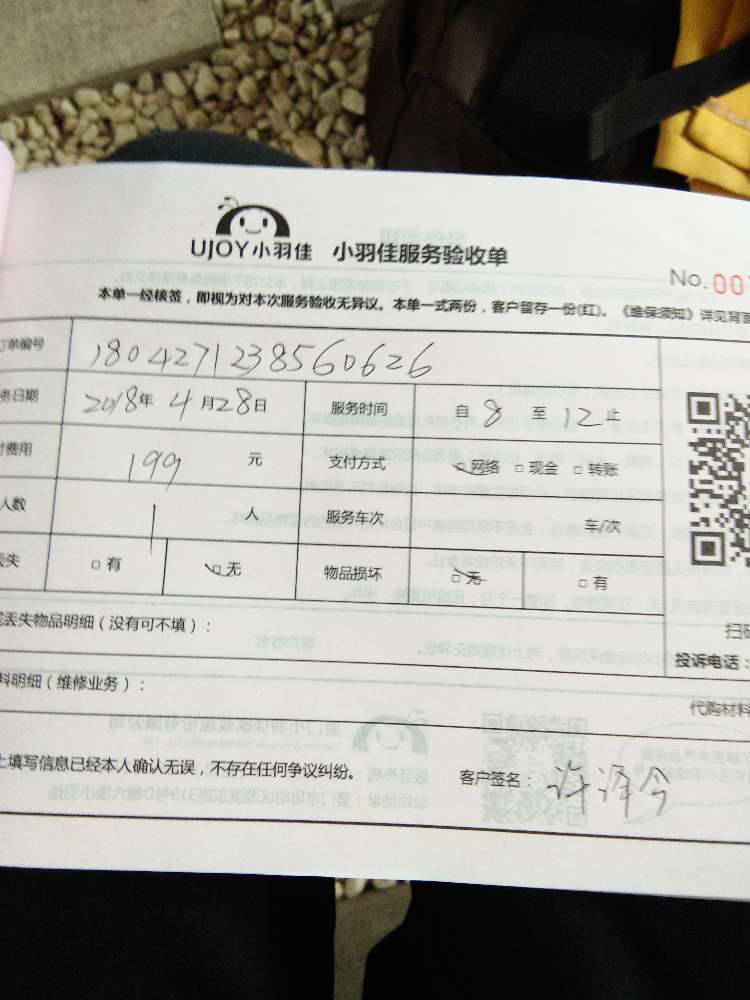 UJOY小羽佳 小羽佳服务验收单
No.00
本单一经核签，即视为对本次服务验收无异议。本单一式两份，客户留存一份(红)。《维保须知》详见背面
单编号 1804271238560626
务日期 2018年4月28日 服务时间 自8至12止
费用 199 元 支付方式 网络 现金 转账
人数 1 人 服务车次 车/次
丢失 有 无 物品损坏 无 有
丢失物品明细（没有可不填）： 扫码
投诉电话：
料明细（维修业务）： 代购材料
上填写信息已经本人确认无误，不存在任何争议纠纷。 客户签名：许泽今